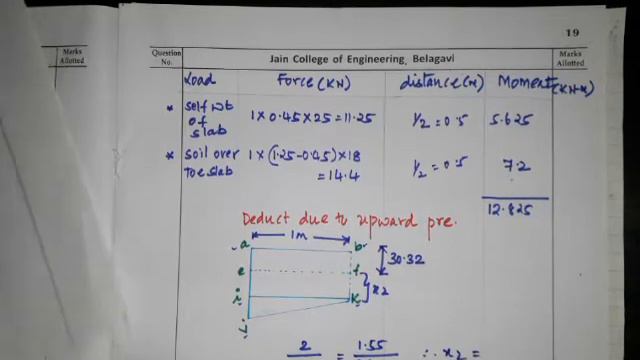 19
Marks Allotted
Question No.
Jain College of Engineering, Belagavi
Marks Allotted
Load Force(KN) distance(m) Moment(KN-m)
* self wt of slab 1 x 0.45 x 25 = 11.25 1/2 = 0.5 5.625
* soil over toe slab 1 x (1.25-0.45) x 18 = 14.4 1/2 = 0.5 7.2
12.825
Deduct due to upward pre.
1m
a b
30.32
e f
x2
i k
j
2 = 1.55 ∴ x2 =